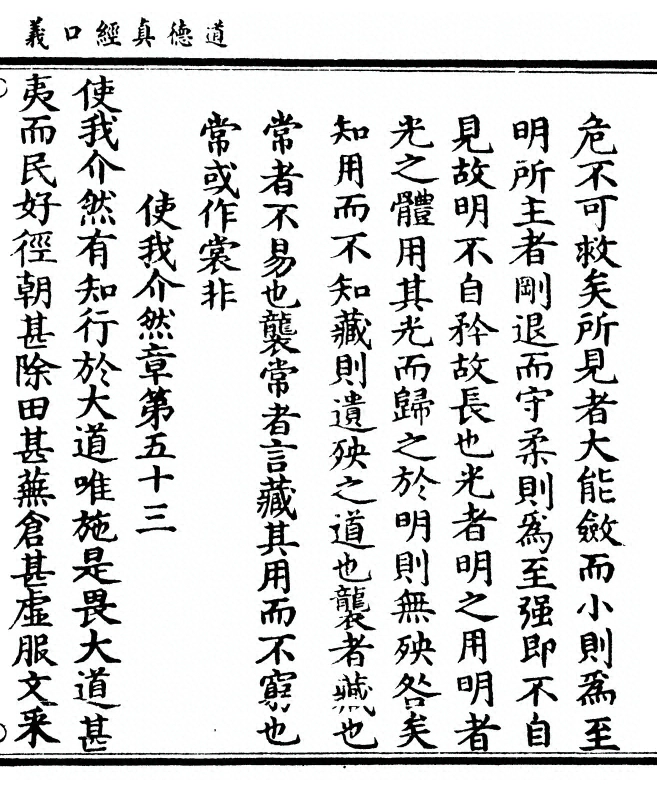 道德真經口義
危不可救矣所見者大能斂而小則爲至
明所主者剛退而守柔則爲至强即不自
見故明不自矜故長也光者明之用明者
光之體用其光而歸之於明則無殃咎矣
知用而不知藏則遺殃之道也襲者藏也
常者不易也襲常者言藏其用而不窮也
常或作裳非
使我介然章第五十三
使我介然有知行於大道唯施是畏大道甚
夷而民好徑朝甚除田甚蕪倉甚虛服文采